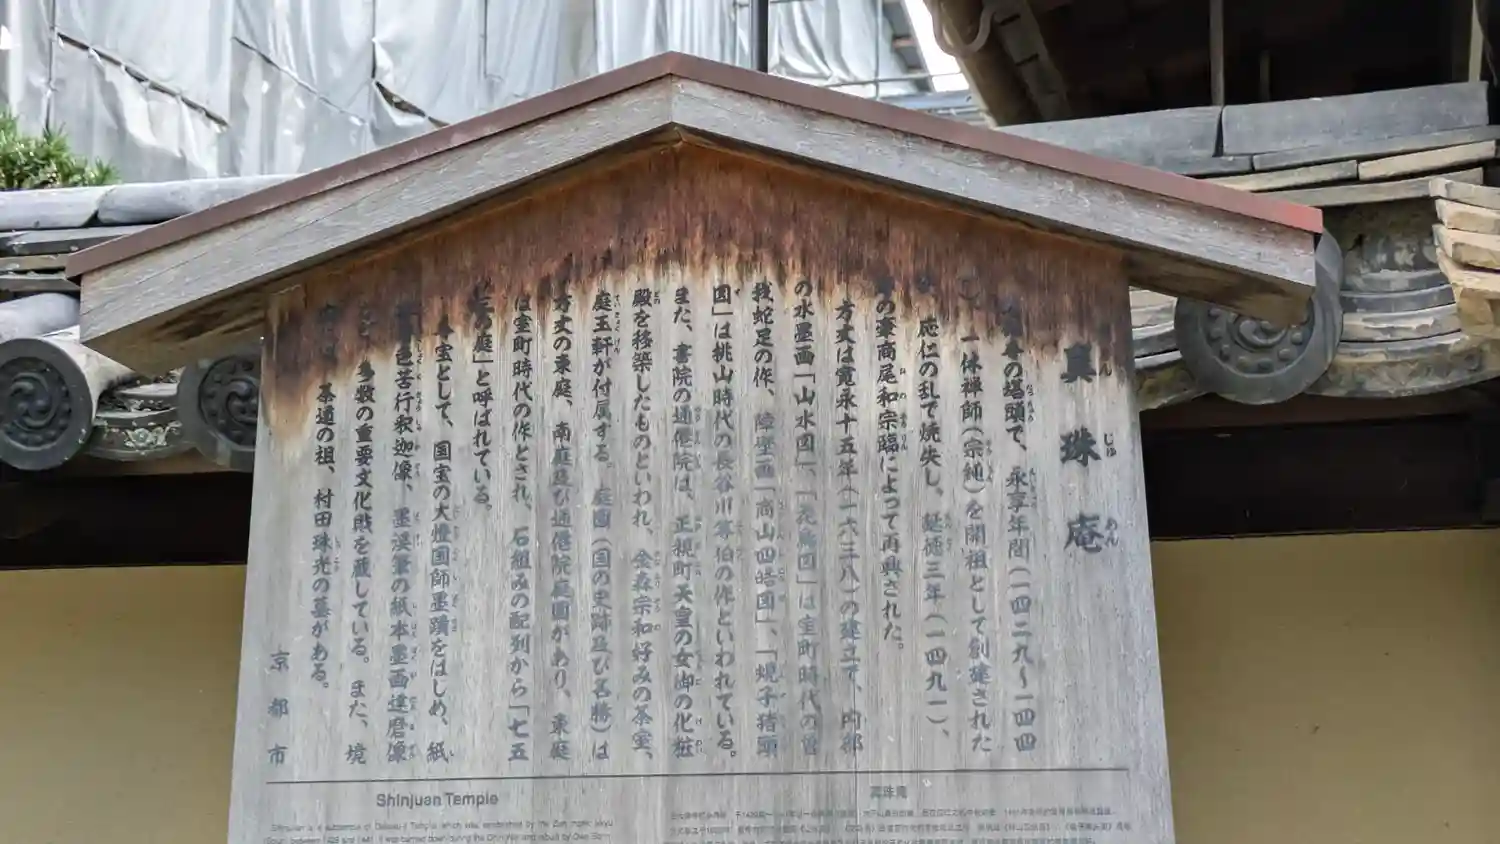 真珠庵
の塔頭で、永享年間(一四二九~一四四
一休禅師(宗純)を開祖として創建された
応仁の乱で焼失し、延徳三年(一四九一)、
の豪商尾和宗臨によって再興された。
方丈は寛永十五年(一六三八)の建立で、内部
の水墨画「山水図」、「花鳥図」は室町時代の曽
我蛇足の作、障壁画「商山四皓図」、「蜆子猪頭
図」は桃山時代の長谷川等伯の作といわれている。
また、書院の通僊院は、正親町天皇の女御の化粧
殿を移築したものといわれ、金森宗和好みの茶室、
庭玉軒が付属する。庭園(国の史跡及び名勝)は
方丈の東庭、南庭及び通僊院庭園があり、東庭
は室町時代の作とされ、石組みの配列から「七五
の庭」と呼ばれている。
宝として、国宝の大燈国師墨蹟をはじめ、紙
色苦行釈迦像、墨渓筆の紙本墨画達磨像
多数の重要文化財を蔵している。また、境
茶道の祖、村田珠光の墓がある。
京都市
Shinjuan Temple
Shinjuan is a subtemple of Daitoku-ji Temple which was established by the Zen monk Ikkyu
真珠庵